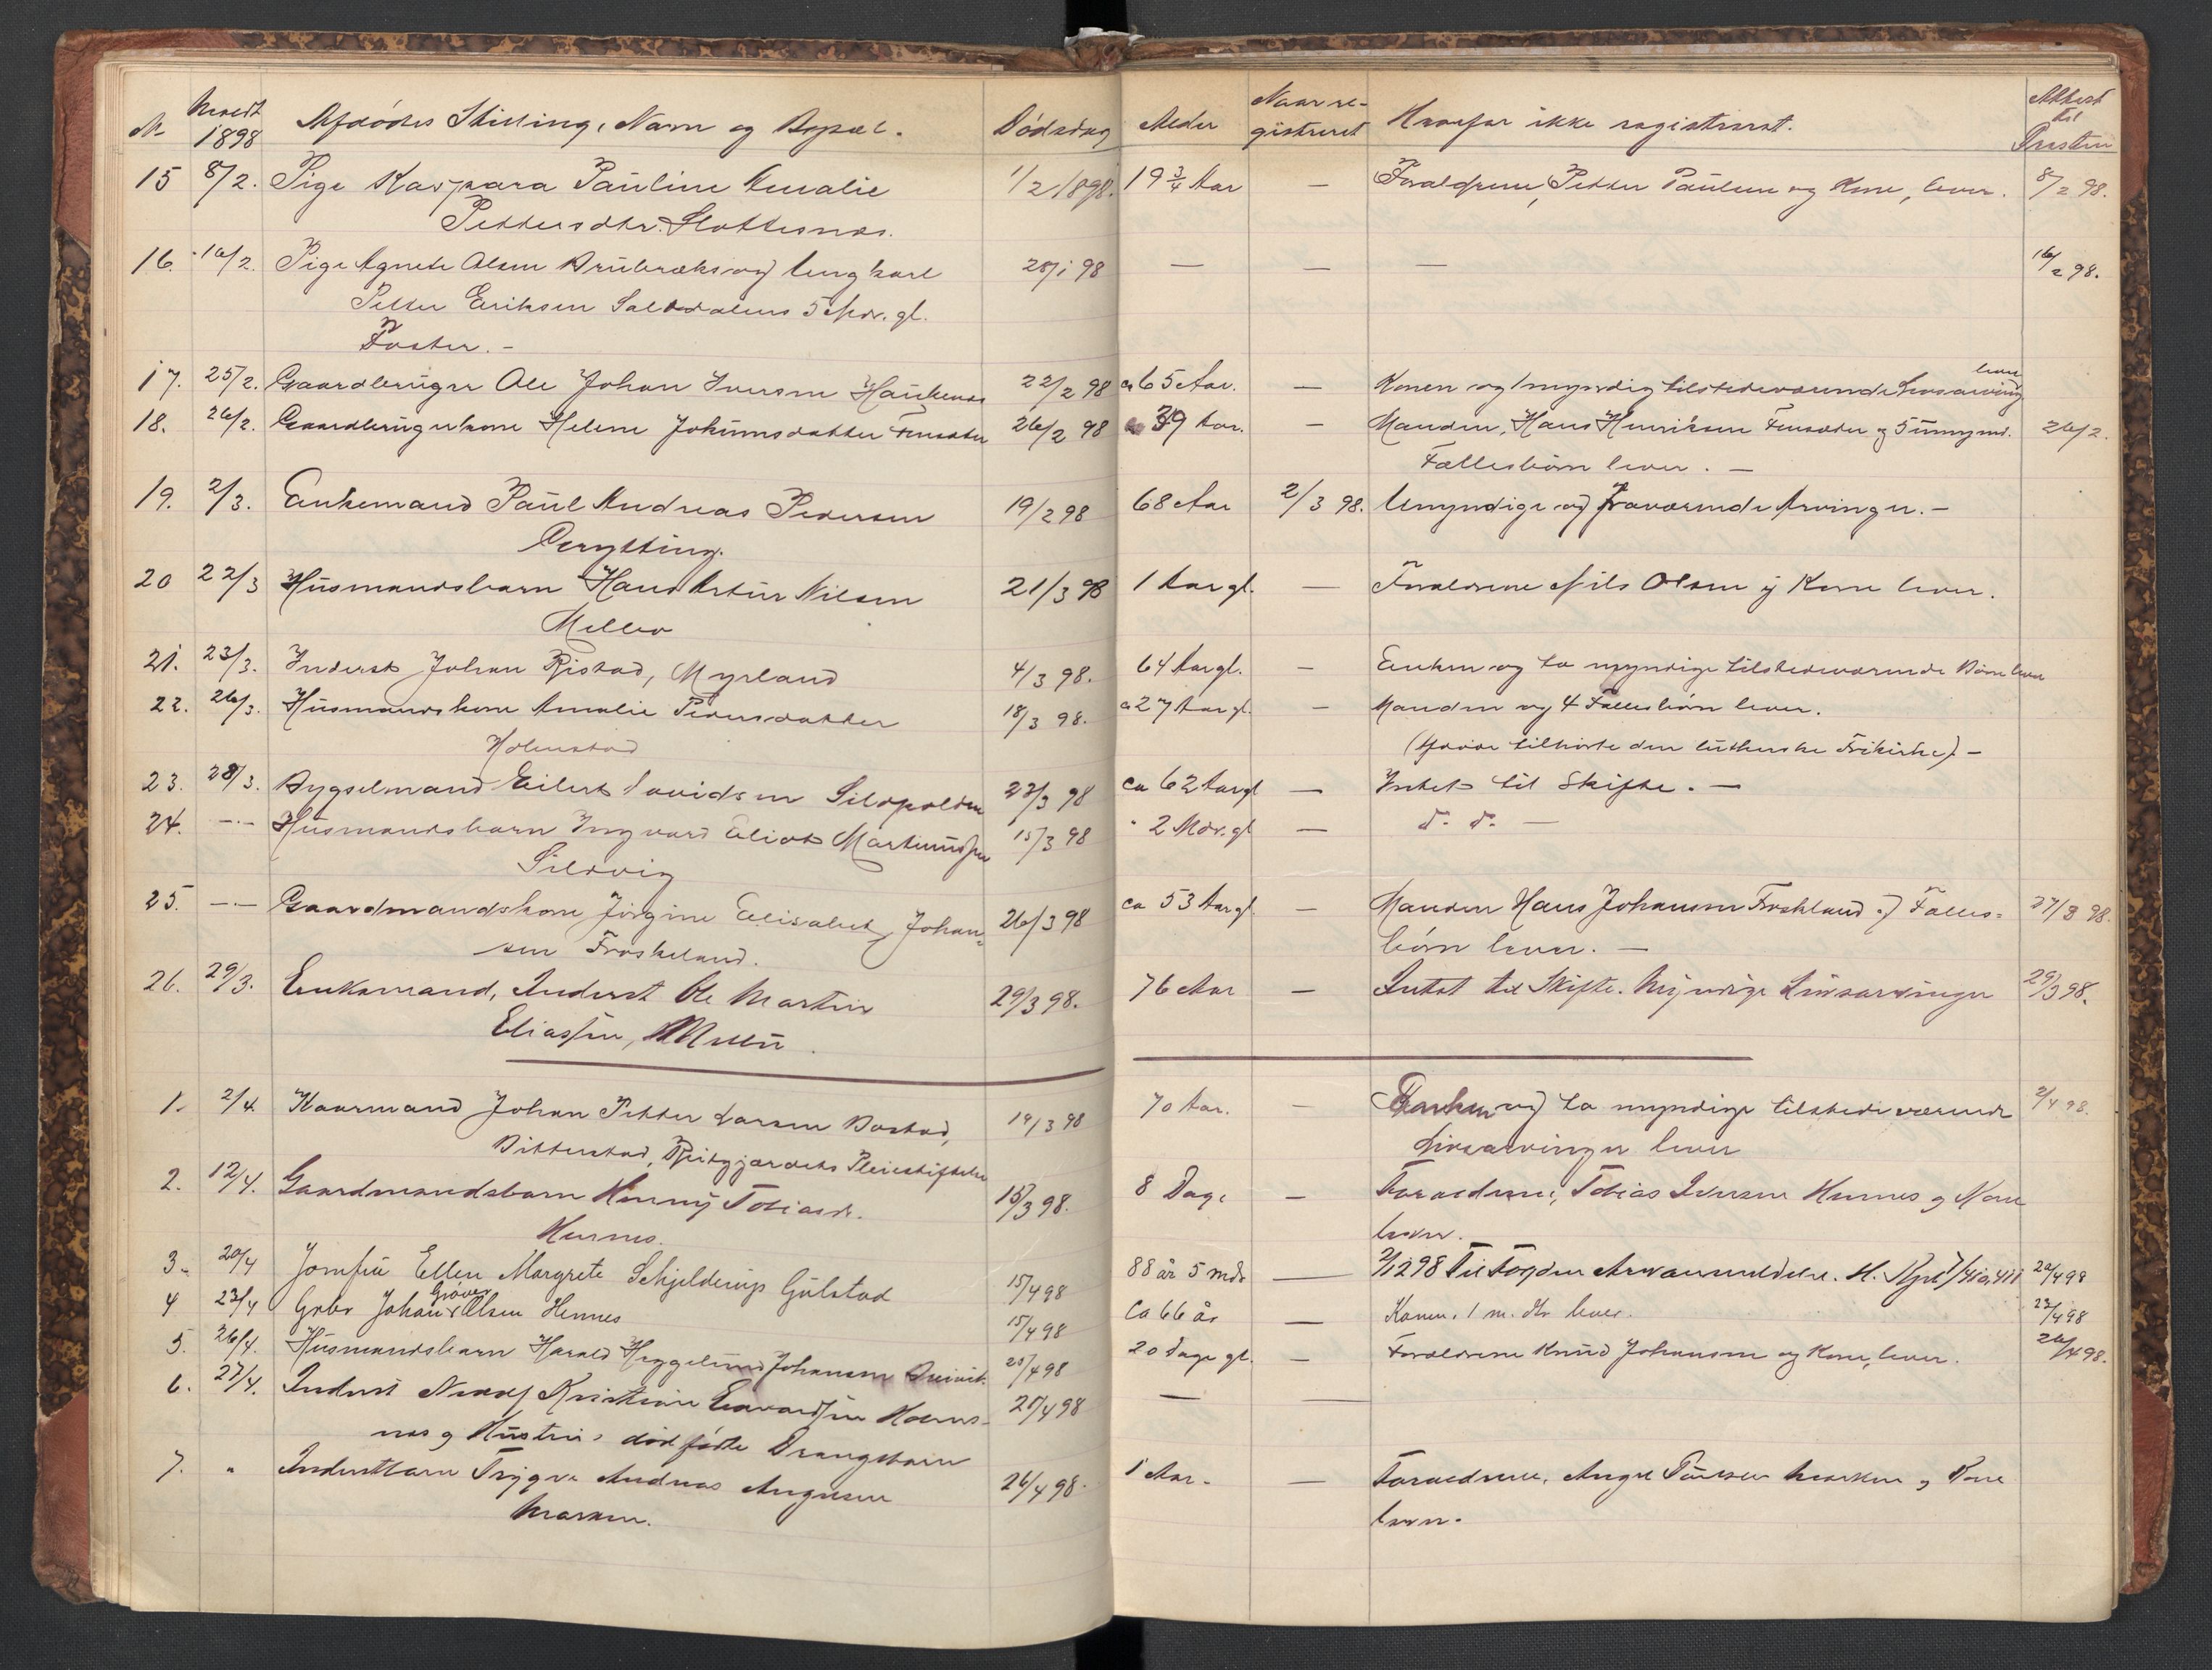 № Meldt 1898 Afdødes Stilling, Navn og Bopæl. Dødsdag Alder Naar registreret Hvorfor ikke registreret. Attest til Presten
15 8/2. Pige Kaspara Pauline Amalie 1/2 1898. 19 3/4 Aar — Forældrene, Petter Paulsen og Kone, lever. 8/2 98.
Pettersdtr. Slottesnes.
16. 16/2. Pige Agnete Olsen og Ungkarl 28/1 98 — — — 16/2 98.
Petter Eriksen 5 Mdr. gl.
Foster. -
17. 25/2. Gaardbruger Ole Johan Iversen Haukenes 22/2 98 ca 65 Aar. — Konen og 1 myndig tilstedeværende Livsarving lever
18. 26/2. Gaardbrugerkone Helene Johannsdatter Finsæter 26/2 98 39 Aar. — Manden, Hans Henriksen Finsæter og 5 umynd. 26/2.
Fællesbørn lever. —
19. 2/3. Enkemand Paul Andreas Pedersen 19/2 98 68 Aar 2/3 98. Umyndige og fraværende Arvinger. -
20 22/3 Husmandsbarn Hans Artur Nilsen 21/3 98 1 Aar gl. — Forældrene Nils Olsen og Kone lever.
Melbo
21. 23/3. Inderst Johan Ristad, Myrland 4/3 98. 64 Aar gl. — Enken og to myndige tilstedeværende Børn lever
22. 26/3. Husmandskone Amalie Pedersdatter 18/3 98. ca 27 Aar gl. — Manden og 4 Fællesbørn lever.
Holmstad (Afdøde tilhørte den lutherske Frikirke). —
23. 28/3. Bygselmand Eilert Davidsen Sildpolden 22/3 98 ca 62 Aar gl — Intet til Skifte. —
24. -"- Husmandsbarn Ingvard Eliot Martinussen 15/3 98 " 2 Mdr. gl — d. d. —
Sildvig
25. -"- Gaardmandskone Jørgine Elisabet Johan= 26/3 98 ca 53 Aar gl. — Manden Hans Johansen Froskland og Fælles= 27/3 98.
sen Froskeland. børn lever. —
26. 29/3. Enkemand, Inderst Ole Martin 29/3 98. 76 Aar — Intet til Skifte. Myndige Livsarvinger 29/3 98.
Eliassen,
1. 2/4. Kaarmand Johan Petter Larsen Bostad, 19/3 98 70 Aar. — Enken og to myndige tilstedeværende 2/4 98.
Bitterstad, Reitgjærdets Pleiestiftelse Livsarvinger lever
2. 12/4. Gaardmandsbarn Henny Tobiasdr. 15/3 98. 8 Dage — Forældrene, Tobias Iversen Hennes og Kone
Hennes. lever.
3. 20/4 Jomfru Ellen Margrete Schjelderup Gulstad 15/4 98 88 år 5 mdr — 2/12 98 Til Fogden Arveanmeldelse. 20/4 98
4 23/4 Gbr Johan Grøver Olsen Hennes 15/4 98 Ca 66 år — Konen, 1 m. dtr lever. 23/4 98
5. 26/4. Husmandsbarn Harald Heggelund Johansen 25/4 98 20 Dage gl. — Forældrene Knud Johansen og Kone, lever. 26/4 98.
6. 27/4. Inderst Kristian Edvardsen Holms- 25/4 98 — —
nes og Hustrus dødfødte Drengebarn
7. " Inderstbarn Trygve Andreas Angelsen 26/4 98. 1 Aar. — Forældrene, Angel Paulsen Marken og Kone
Marken. lever.